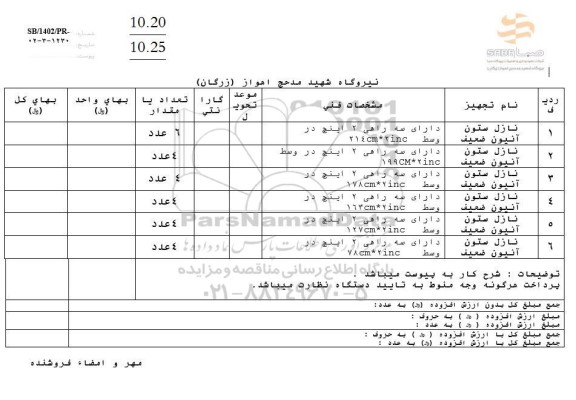 10.20
10.25
شماره SB/1402/PR-
۰۲-۳-۱۲۳۰
SABA صبا
نیروگاه شهید مدحج اهواز (زرگان)
ردیف | نام تجهیز | مشخصات فنی | موعد تحویل | گارانتی | تعداد یا مقدار | بهای واحد (ریال) | بهای کل (ریال)
۱ | نازل ستون آنیون ضعیف | دارای سه راهی ۲ اینچ در وسط ۲۱۴cm*۲inc | ۶ عدد
۲ | نازل ستون آنیون ضعیف | دارای سه راهی ۲ اینچ در وسط ۱۹۹CM*۲inc | ۴عدد
۳ | نازل ستون آنیون ضعیف | دارای سه راهی ۲ اینچ در وسط ۱۷۸cm*۲inc | ۴ عدد
۴ | نازل ستون آنیون ضعیف | دارای سه راهی ۲ اینچ در وسط ۱۶۳cm*۲inc | ۴عدد
۵ | نازل ستون آنیون ضعیف | دارای سه راهی ۲ اینچ در وسط ۱۲۷cm*۲inc | ۴عدد
۶ | نازل ستون آنیون ضعیف | دارای سه راهی ۲ اینچ در وسط ۷۸cm*۲inc | ۴عدد
ParsNamadData
پایگاه اطلاع رسانی مناقصه و مزایده
۰۲۱-۸۸۳۴۹۶۷۰-۵
توضیحات : شرح کار به پیوست میباشد .
پرداخت هرگونه وجه منوط به تایید دستگاه نظارت میباشد.
جمع مبلغ کل بدون ارزش افزوده (ریال) به عدد:
مبلغ ارزش افزوده ( ریال ) به حروف :
مبلغ ارزش افزوده ( ریال ) به عدد :
جمع مبلغ کل با ارزش افزوده ( ریال ) به حروف :
جمع مبلغ کل با ارزش افزوده (ریال) به عدد :
مهر و امضاء فروشنده